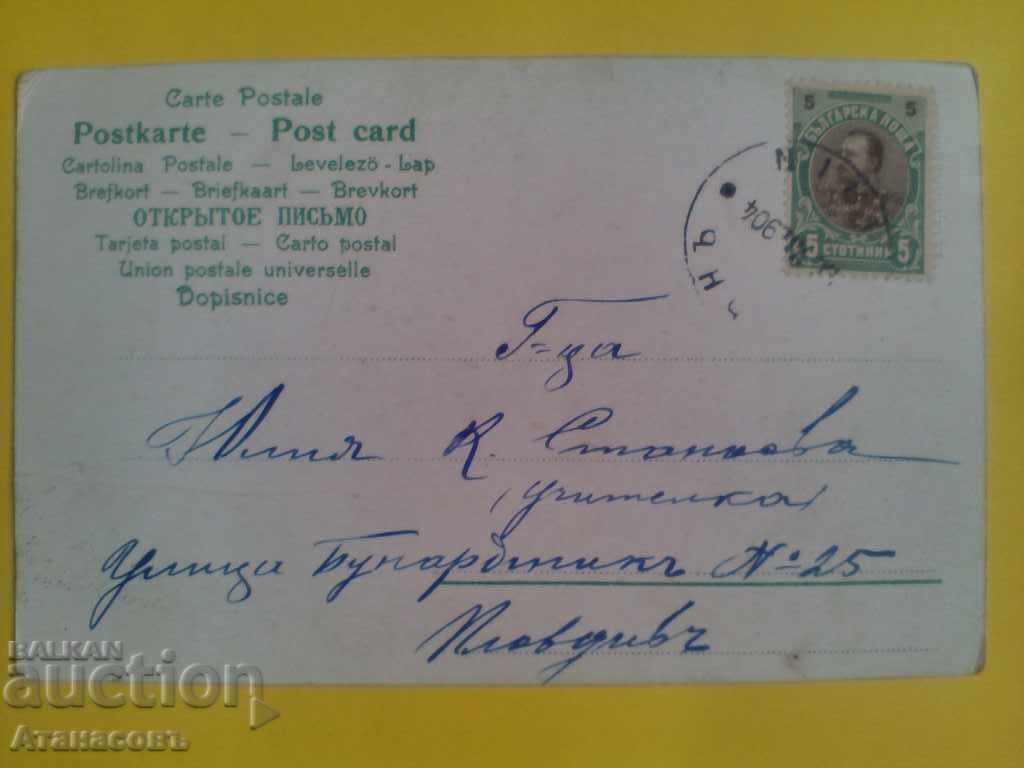 Carte Postale
Postkarte — Post card
Cartolina Postale — Levelező-Lap
Brefkort — Briefkaart — Brevkort
ОТКРЫТОЕ ПИСЬМО
Tarjeta postal — Carto postal
Union postale universelle
Dopisnice
5 5
БЪЛГАРСКА ПОЩА
5 СТОТИНКИ 5
904
Г-ца
Юлия К. Станкова
(учителка)
Улица Бунарджикъ № 25
Пловдивъ
BALKAN
auction
Атанасовъ